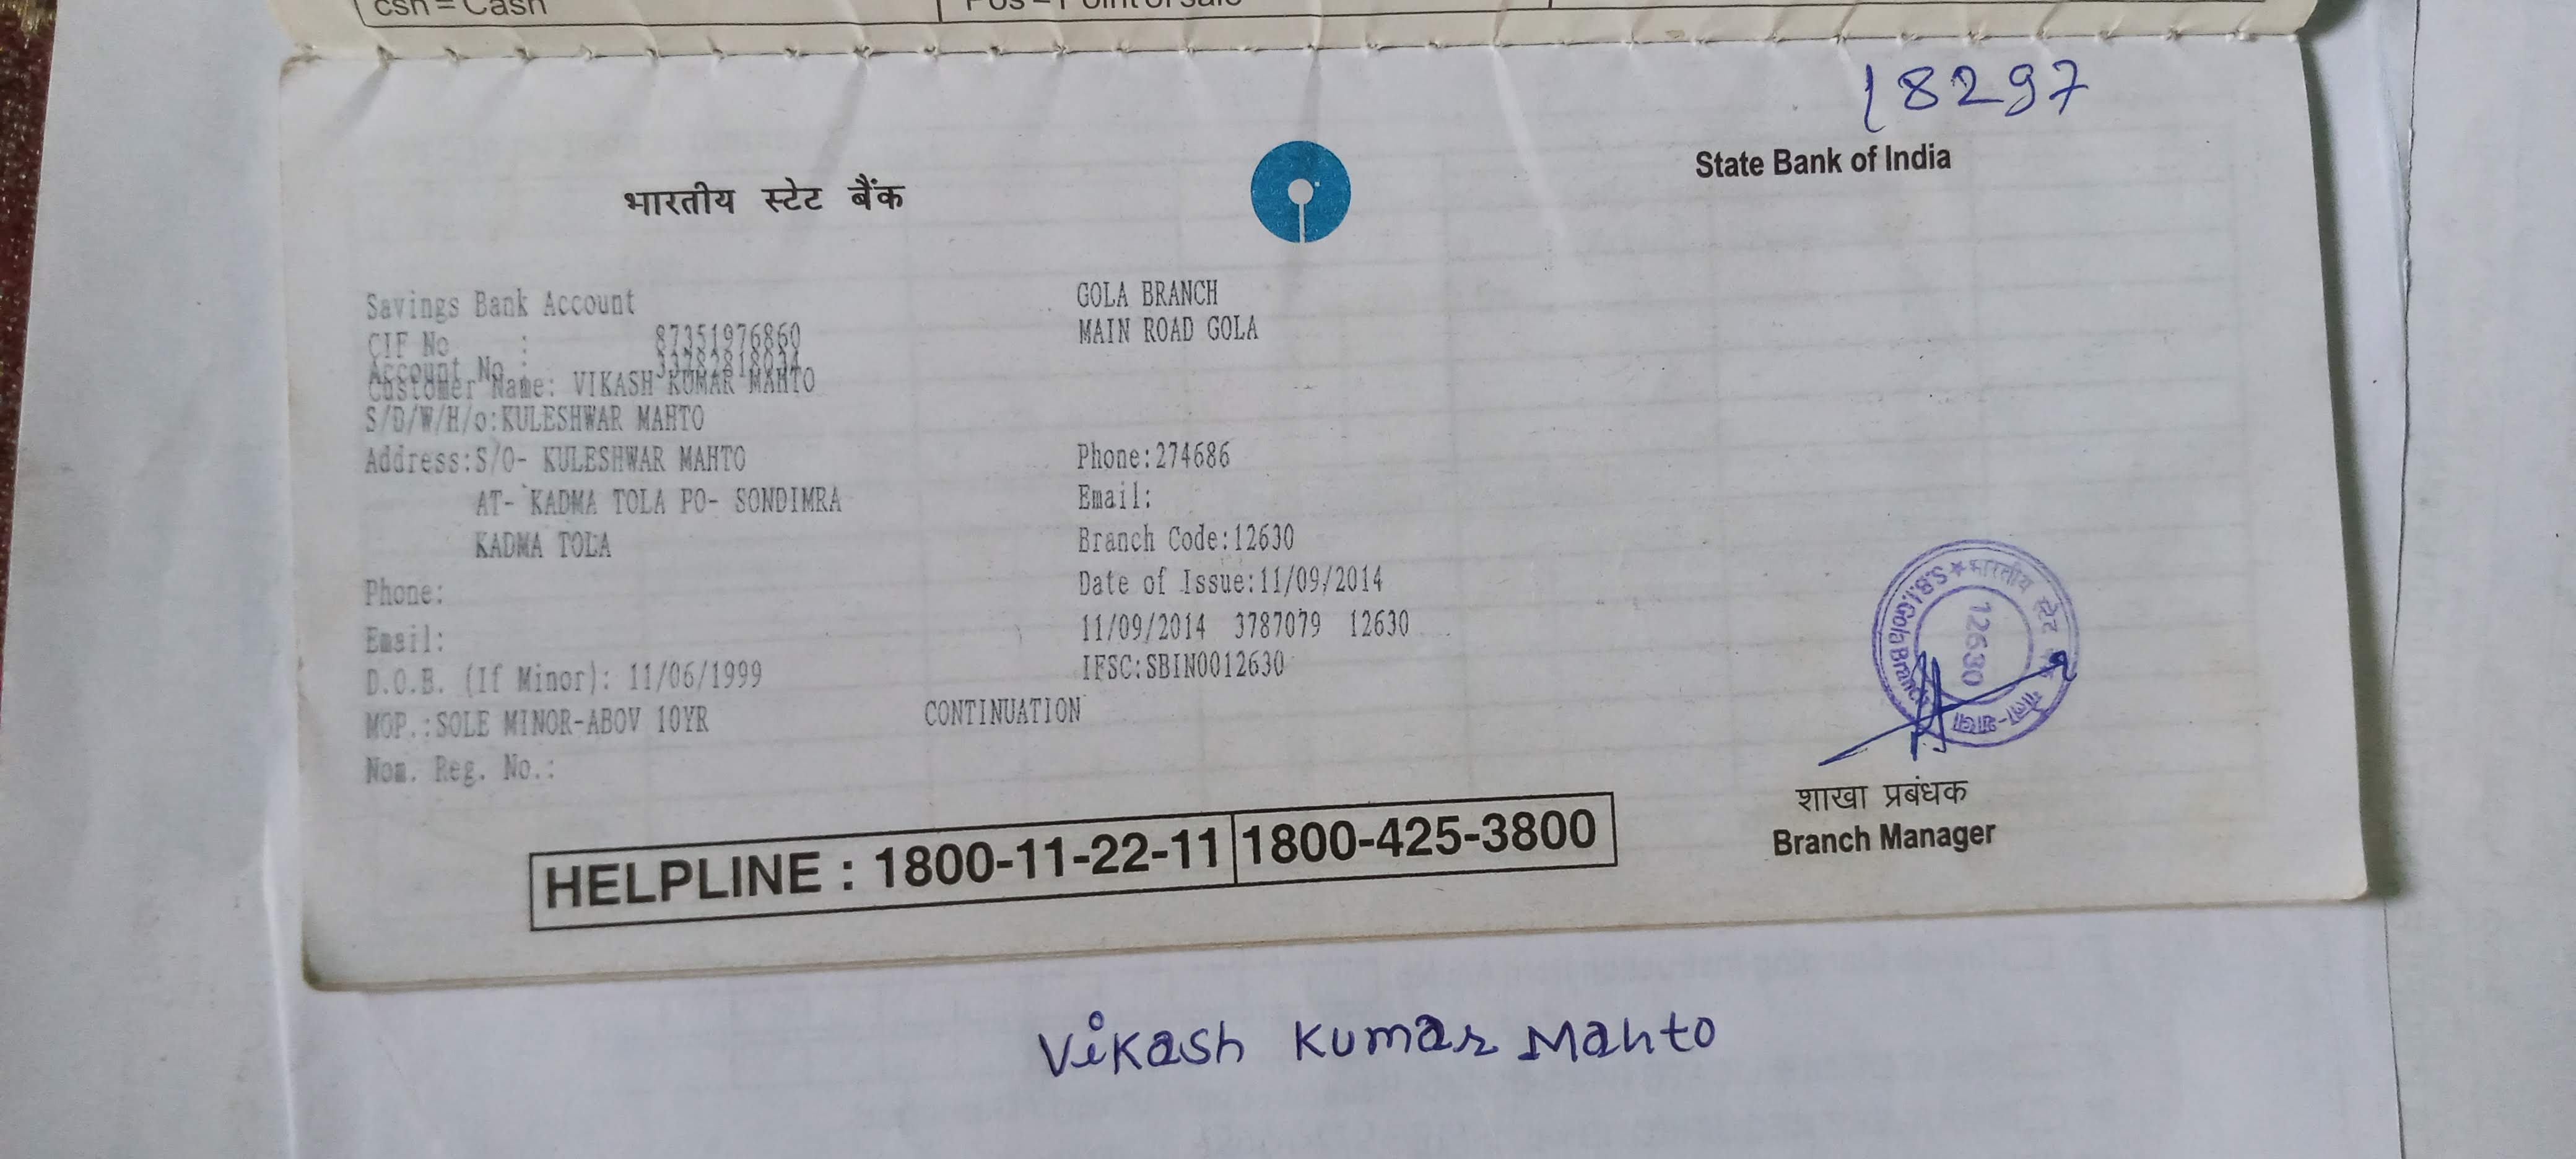 csh = Cash
Pos = Point of sale
18297
भारतीय स्टेट बैंक
State Bank of India
Savings Bank Account
CIF No : 87351976860
Account No :
Customer Name: VIKASH KUMAR MAHTO
S/D/W/H/o:KULESHWAR MAHTO
Address:S/O- KULESHWAR MAHTO
AT- KADMA TOLA PO- SONDIMRA
KADMA TOLA
Phone:
Email:
D.O.B. (If Minor): 11/06/1999
MOP.:SOLE MINOR-ABOV 10YR
Nom. Reg. No.:
GOLA BRANCH
MAIN ROAD GOLA
Phone:274686
Email:
Branch Code:12630
Date of Issue:11/09/2014
11/09/2014 3787079 12630
IFSC:SBIN0012630
CONTINUATION
भारतीय स्टेट
S.B.I.Gola Branch
12630
शाखा प्रबंधक
Branch Manager
HELPLINE : 1800-11-22-11 1800-425-3800
Vikash Kumar Mahto